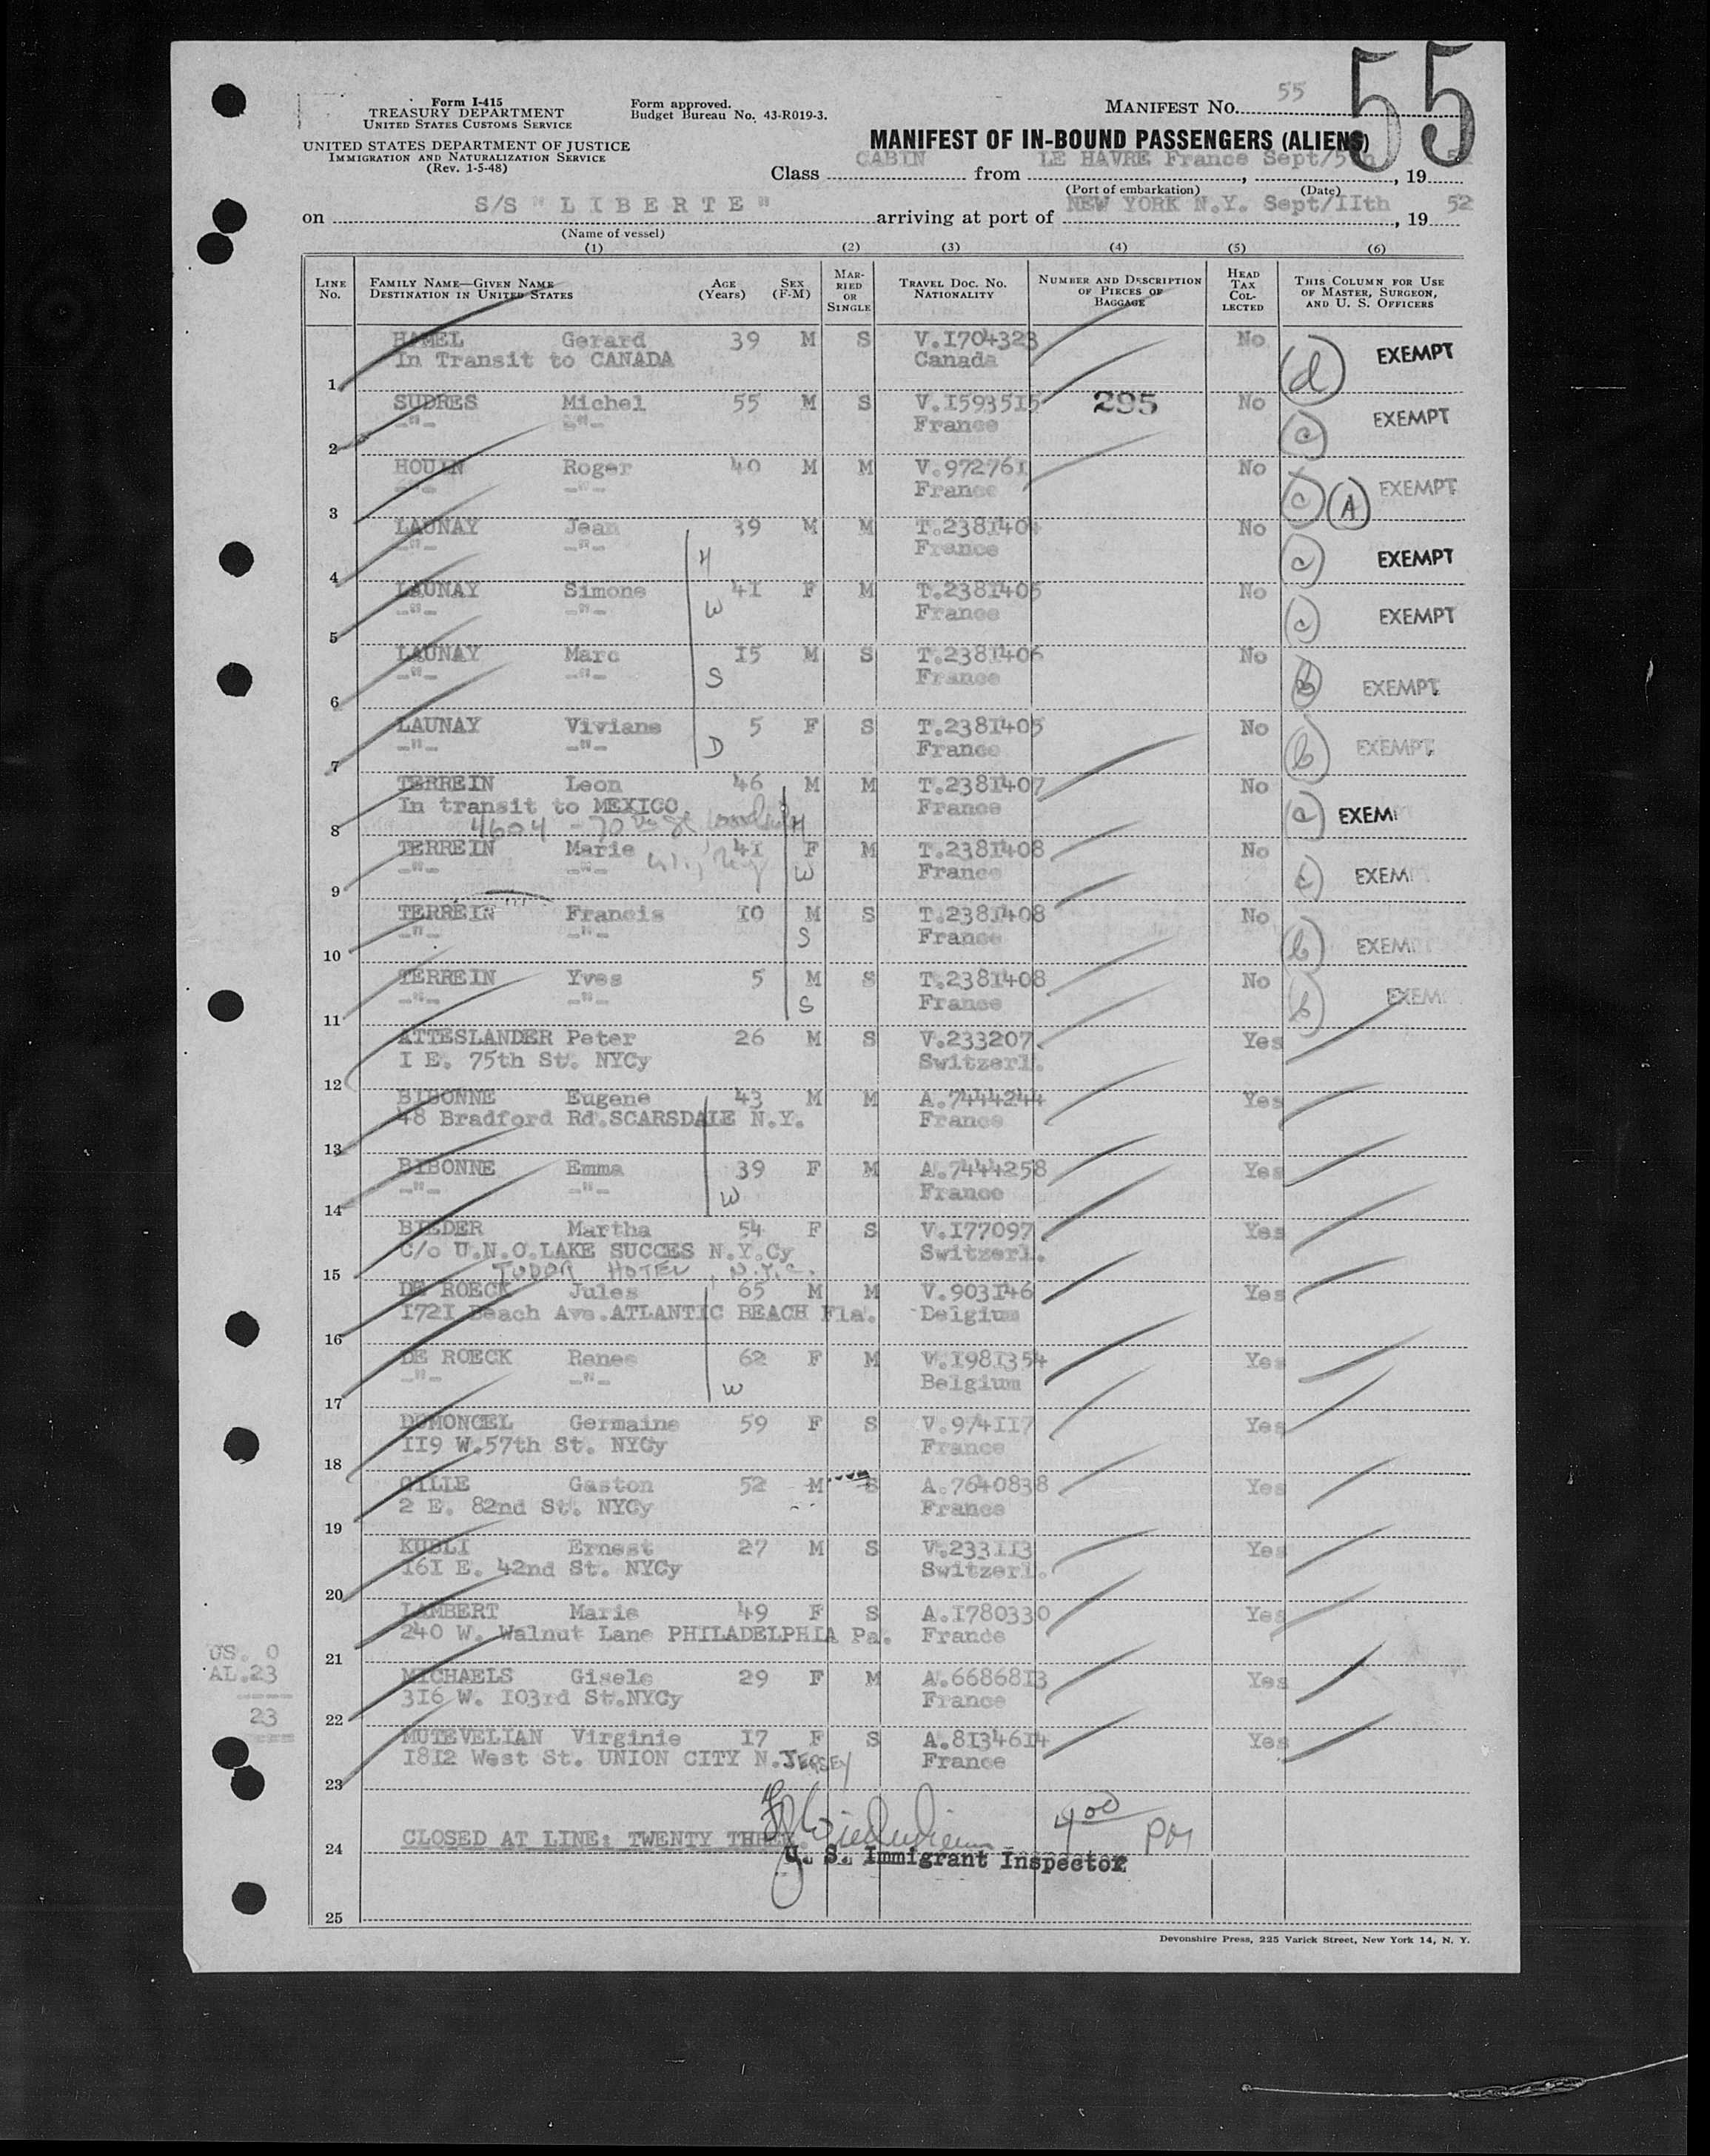 55
Form I-415
TREASURY DEPARTMENT
UNITED STATES CUSTOMS SERVICE
UNITED STATES DEPARTMENT OF JUSTICE
IMMIGRATION AND NATURALIZATION SERVICE
(Rev. 1-5-48)
Form approved.
Budget Bureau No. 43-R019-3.
MANIFEST NO. 55
MANIFEST OF IN-BOUND PASSENGERS (ALIENS)
Class CABIN from LE HAVRE France Sept/5th, 19 52
(Port of embarkation) (Date)
on S/S " L I B E R T E " arriving at port of NEW YORK N.Y. Sept/IIth, 19 52
(Name of vessel)
(1) (2) (3) (4) (5) (6)
LINE No. FAMILY NAME—GIVEN NAME DESTINATION IN UNITED STATES AGE (Years) SEX (F-M) MARRIED OR SINGLE TRAVEL DOC. NO. NATIONALITY NUMBER AND DESCRIPTION OF PIECES OF BAGGAGE HEAD TAX COLLECTED THIS COLUMN FOR USE OF MASTER, SURGEON, AND U. S. OFFICERS
HAMEL Gerard 39 M S V.I704323 No (d) EXEMPT
1 In Transit to CANADA Canada
SUDRES Michel 55 M S V.I593515 295 No (c) EXEMPT
2 -"- -"- France
HOUIN Roger 40 M M V.972761 No (c) (A) EXEMPT
3 -"- -"- France
LAUNAY Jean 39 M M T.238I404 No (c) EXEMPT
4 -"- -"- H France
LAUNAY Simone 4I F M T.238I405 No (c) EXEMPT
5 -"- -"- W France
LAUNAY Marc I5 M S T.238I406 No (b) EXEMPT
6 -"- -"- S France
LAUNAY Viviane 5 F S T.238I405 No (b) EXEMPT
7 -"- -"- D France
TERREIN Leon 46 M M T.238I407 No (c) EXEM
In transit to MEXICO France
8 4604 - 70 St H
TERREIN Marie 4I F M T.238I408 No (c) EXEM
9 -"- -"- W France
TERREIN Francis I0 M S T.238I408 No (b) EXEM
10 -"- -"- S France
TERREIN Yves 5 M S T.238I408 No (b) EXEM
11 -"- -"- S France
ATTESLANDER Peter 26 M S V.233207. Yes
12 I E. 75th St. NYCy Switzerl.
BIBONNE Eugene 43 M M A.7444244 Yes
13 48 Bradford Rd.SCARSDALE N.Y. France
BIBONNE Emma 39 F M A.7444258 Yes
14 -"- -"- W France
BIEDER Martha 54 F S V.I77097. Yes
C/o U.N.O.LAKE SUCCES N.Y.Cy Switzerl.
15 TUDOR HOTEL, N.Y.C.
DE ROECK Jules 65 M M V.903I46 Yes
16 I72I Beach Ave.ATLANTIC BEACH Fla. Belgium
DE ROECK Renee 62 F M V.I98I354 Yes
17 -"- -"- W Belgium
DUMONCEL Germaine 59 F S V.974II7 Yes
18 II9 W.57th St. NYCy France
GILLE Gaston 52 M S A.7640838 Yes
19 2 E. 82nd St. NYCy France
KUBLI Ernest 27 M S V.233II3 Yes
20 I6I E. 42nd St. NYCy Switzerl.
LAMBERT Marie 49 F S A.I780330 Yes
21 240 W. Walnut Lane PHILADELPHIA Pa. France
MICHAELS Gisele 29 F M A.66868I3 Yes
22 3I6 W. I03rd St.NYCy France
MUTEVELIAN Virginie I7 F S A.8I346I4 Yes
23 I8I2 West St. UNION CITY N.JERSEY France
US. 0
AL.23
23
24 CLOSED AT LINE: TWENTY THREE. 4 00 PM
U. S. Immigrant Inspector
25
Devonshire Press, 225 Varick Street, New York 14, N. Y.